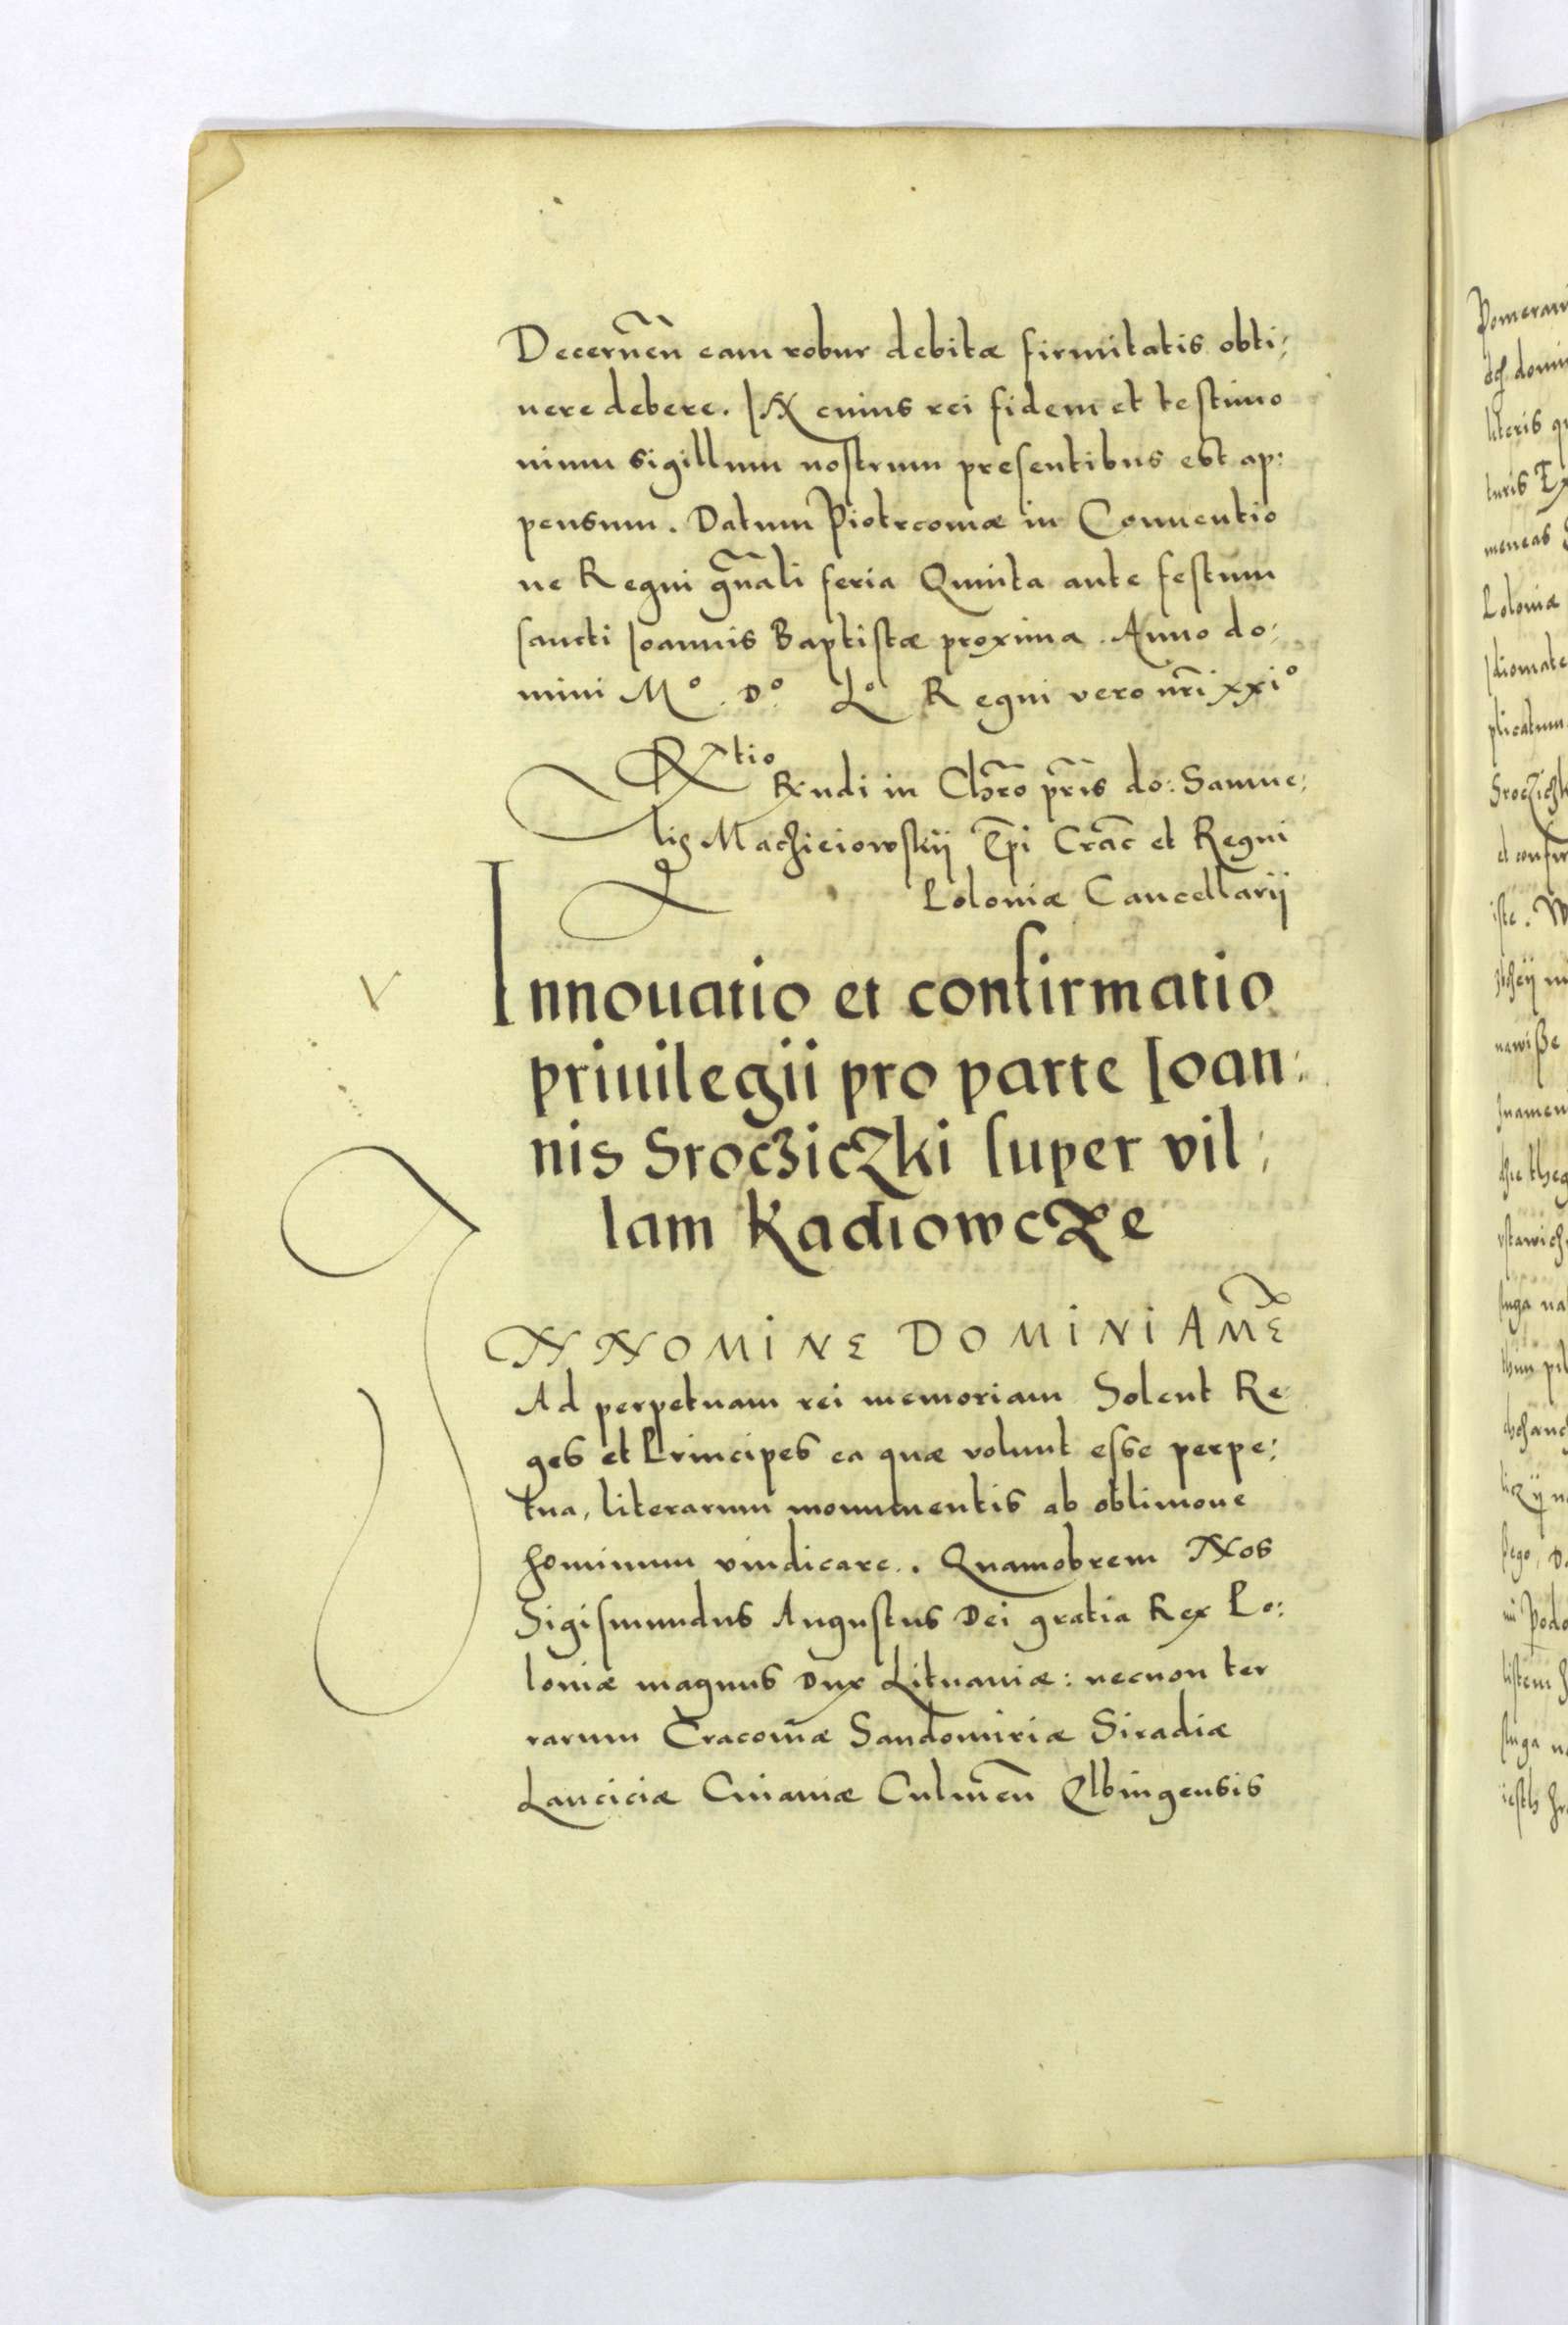 Decerneñ eam robur debitæ firmitatis obti:
nere debere. IN cuius rei fidem et testimo
nium sigillum nostrum presentibus est ap:
pensum. Datum Piotrcoviæ in Conventio
ne Regni gñali feria Quinta ante festum
sancti Ioannis Baptistæ proxima. Anno do:
mini Mº. Dº. Lº Regni vero nr̃i xxiº
Rtio Rx̃ndi in Chr̃o pr̃is do: Samue:
lis Maczieiowskij Ep̃i Crac̃ et Regni
Poloniæ Cancellarij
Innouatio et confirmatio
priuilegii pro parte Ioan:
nis Srocziczki super vil:
lam Kadiowcze
IN NOMINE DOMINI AMẼ
Ad perpetuam rei memoriam Solent Re
ges et Principes ea quæ volunt esse perpe:
tua, literarum monumentis ab oblivione
hominum vindicare. Quamobrem Nos
Sigismundus Augustus Dei gratia Rex Po:
loniæ magnus Dux Lituaniæ: necnon ter
rarum Cracoviæ Sandomiriæ Siradiæ
Lanciciæ Cuiaviæ Culmeñ Elbingensis